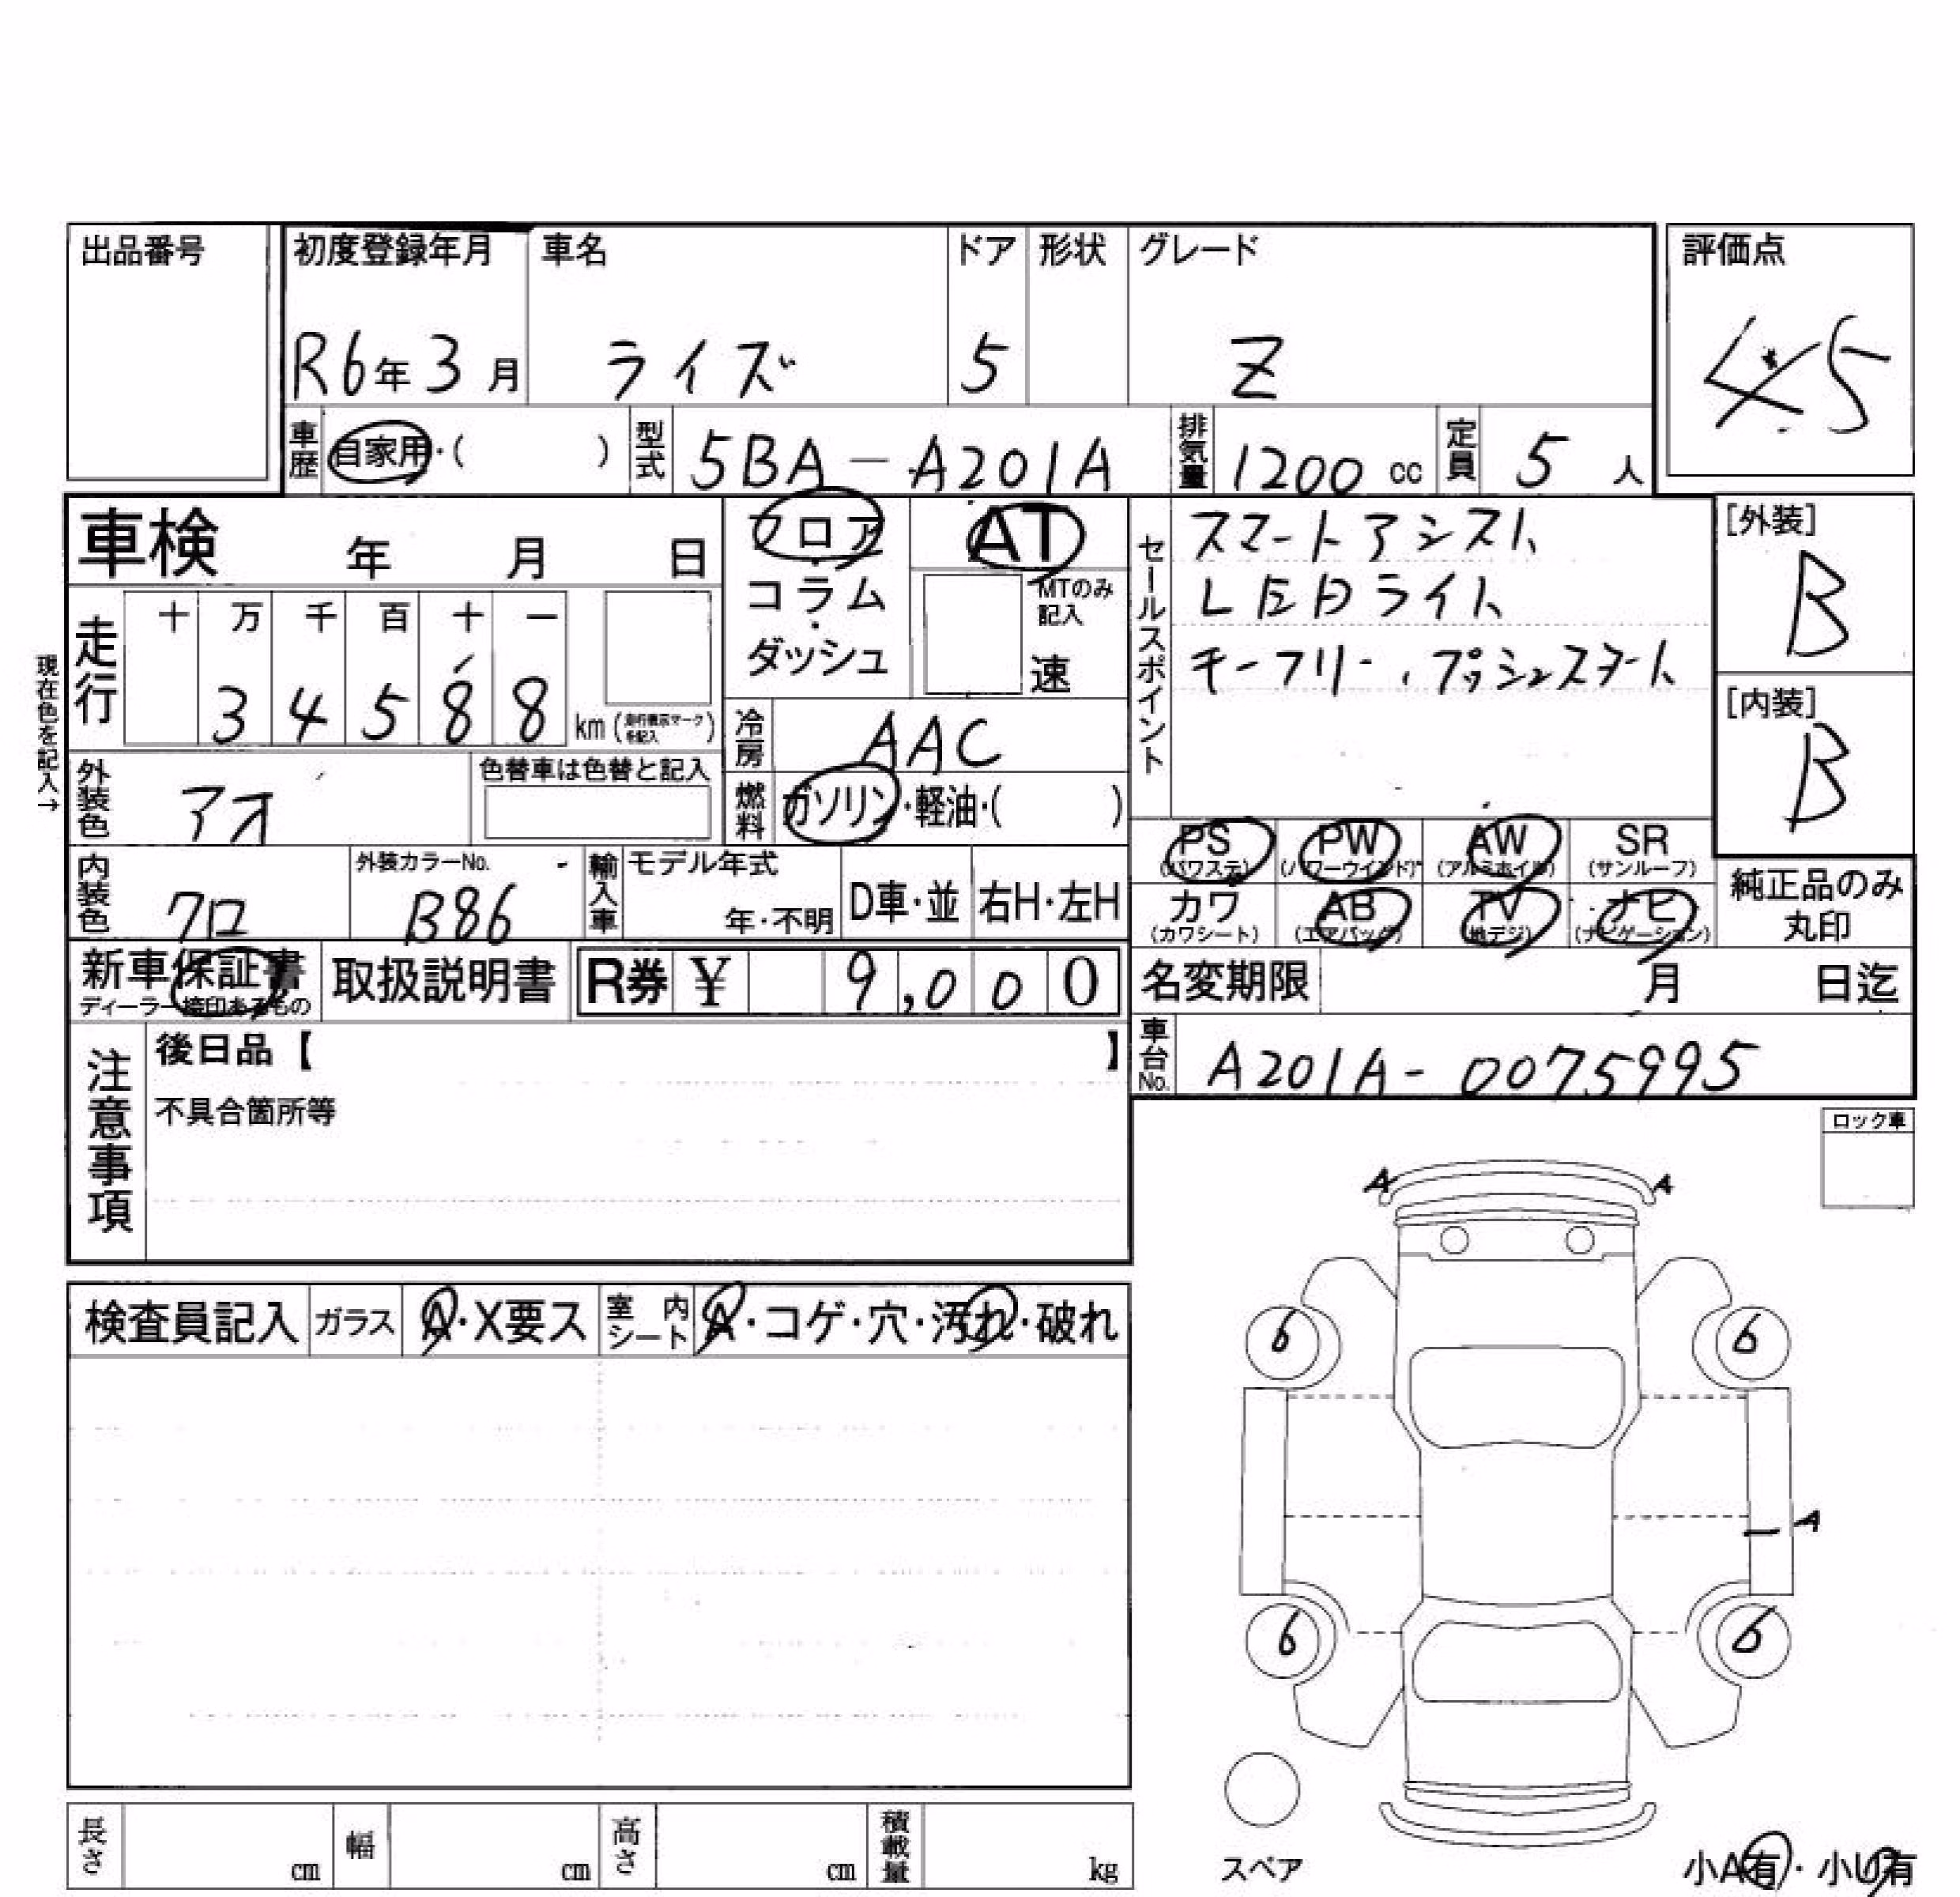 出品番号
初度登録年月 車名 ドア 形状 グレード 評価点
R6年3月 ライズ 5 Z 4.5
車歴 自家用・( ) 型式 5BA-A201A 排気量 1200 cc 定員 5 人
車検 年 月 日
フロア・コラム・ダッシュ
AT
MTのみ記入
速
セールスポイント
スマートアシスト
LEDライト
キーフリー・プッシュスタート
[外装]
B
[内装]
B
現在色を記入→
走行 十 万 千 百 十 一
3 4 5 8 8 km (走行表示マークを記入)
冷房 AAC
外装色 アオ 色替車は色替と記入
燃料 ガソリン・軽油・( )
PS (パワステ) PW (パワーウインド) AW (アルミホイル) SR (サンルーフ)
カワ (カワシート) AB (エアバッグ) TV (地デジ) ナビ (ナビゲーション)
純正品のみ丸印
内装色 クロ 外装カラーNo. B86 輸入車 モデル年式 年・不明 D車・並 右H・左H
新車保証書 ディーラー捺印あるもの 取扱説明書 R券 ¥ 9,000
名変期限 月 日迄
車台No. A201A-0075995
注意事項
後日品【 】
不具合箇所等
ロック車
A A
検査員記入 ガラス A・X要ス 室内シート A・コゲ・穴・汚れ・破れ
6 6
A
6 6
スペア
長さ cm 幅 cm 高さ cm 積載量 kg
小A有・小U有